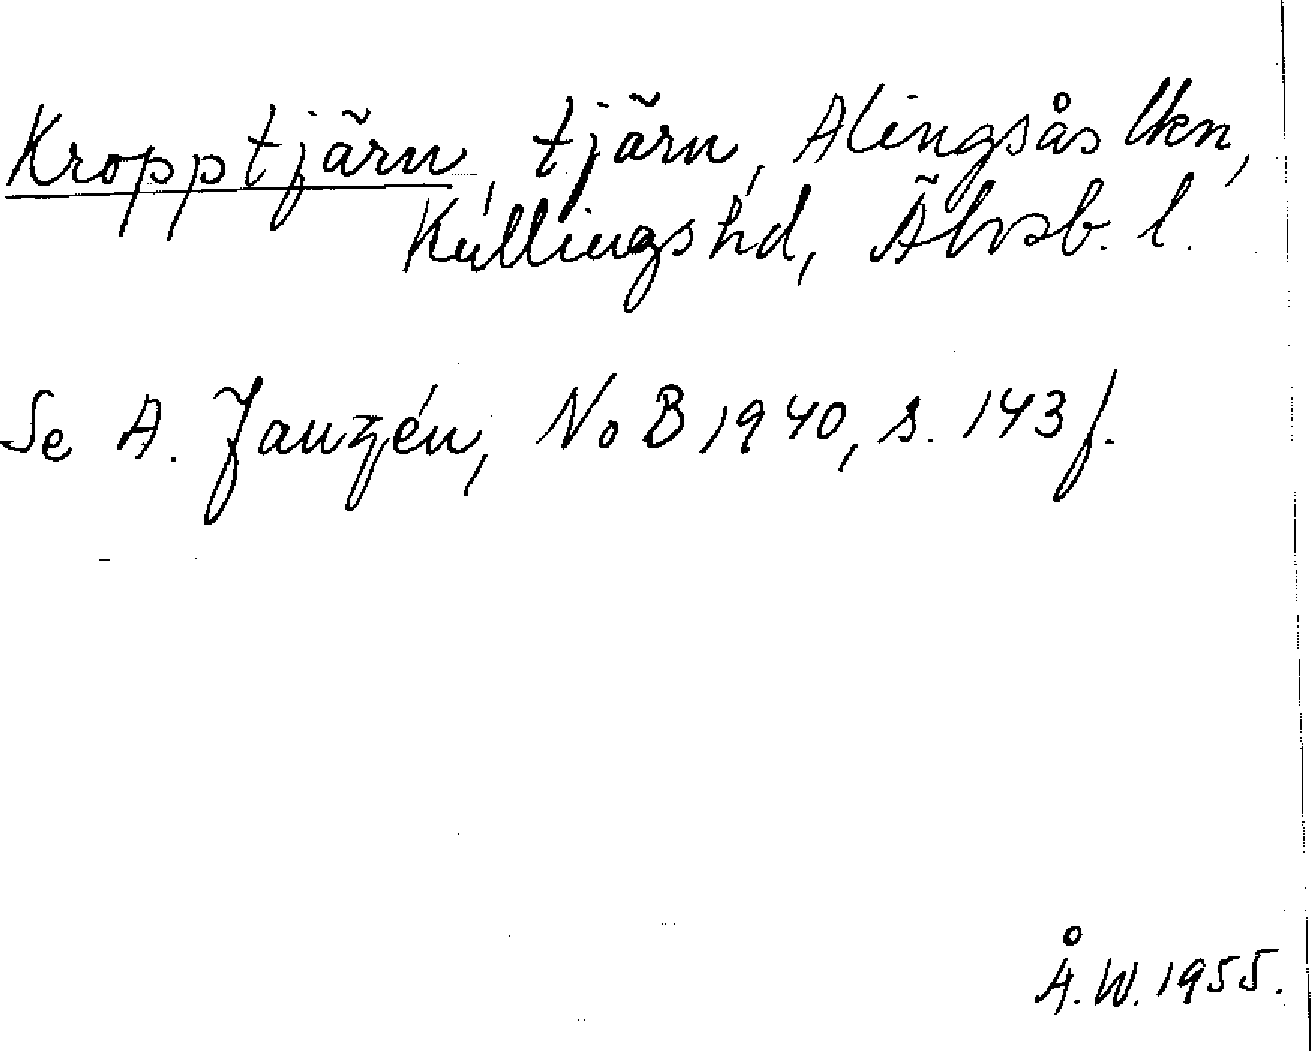 Kropptjärn, tjärn, Alingsås lkn,
Kullings hd, Älvsb. l.
Se A. Janzén, NoB 1940, s. 143 f.
Å. W. 1955.